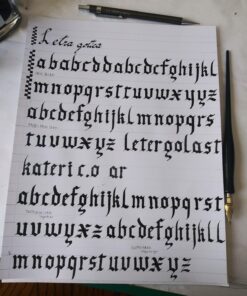 Letra gotica
ababcddabcdcfghijkl
mnopqrstuvwxyz
abcdefghijklmnopqrs
tuvwxyz letergolast
kateri c.o ar
abcdefghijklmnopqrst
uvwyxzabcdefghijkll
mnopqrstuvwxyz